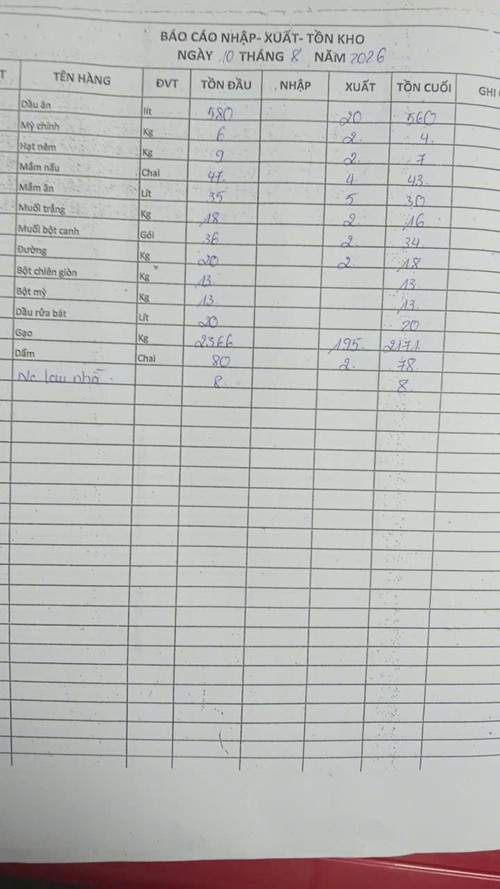 BÁO CÁO NHẬP- XUẤT- TỒN KHO
NGÀY 10 THÁNG 8 NĂM 2026
T TÊN HÀNG ĐVT TỒN ĐẦU NHẬP XUẤT TỒN CUỐI GHI
Dầu ăn lít 580 20 560
Mỳ chính Kg 6 2 4
Hạt nêm Kg 9 2 7
Mắm nấu Chai 47 4 43
Mắm ăn Lít 35 5 30
Muối trắng Kg 18 2 16
Muối bột canh Gói 36 2 34
Đường Kg 20 2 18
Bột chiên giòn Kg 13 13
Bột mỳ Kg 13 13
Dầu rửa bát Lít 20 20
Gạo Kg 2366 195 2171
Dấm Chai 80 2 78
Nc lau nhà 8 8